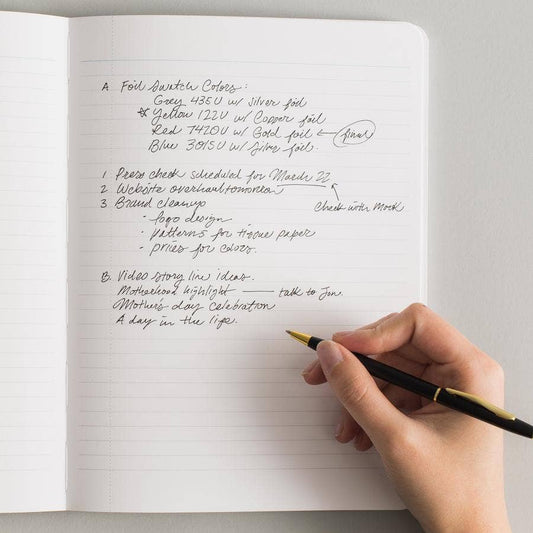 A. Foil Swatch Colors:
Grey 435U w/ silver foil
☆ Yellow 122U w/ Copper foil
Red 7420U w/ Gold foil ← final
Blue 3015U w/ Silver foil.
1 Press check scheduled for March 22
2 Website overhaul tomorrow
check with Mark
3 Brand cleanup
· logo design
· patterns for tissue paper
· prices for colors.
B. Video story line ideas.
Motherhood highlight — talk to Jon.
Mother's day celebration
A day in the life.